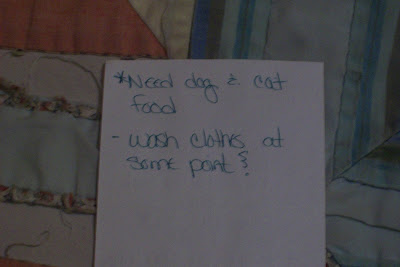 *Need dog & cat
food
- wash clothes at
some point?